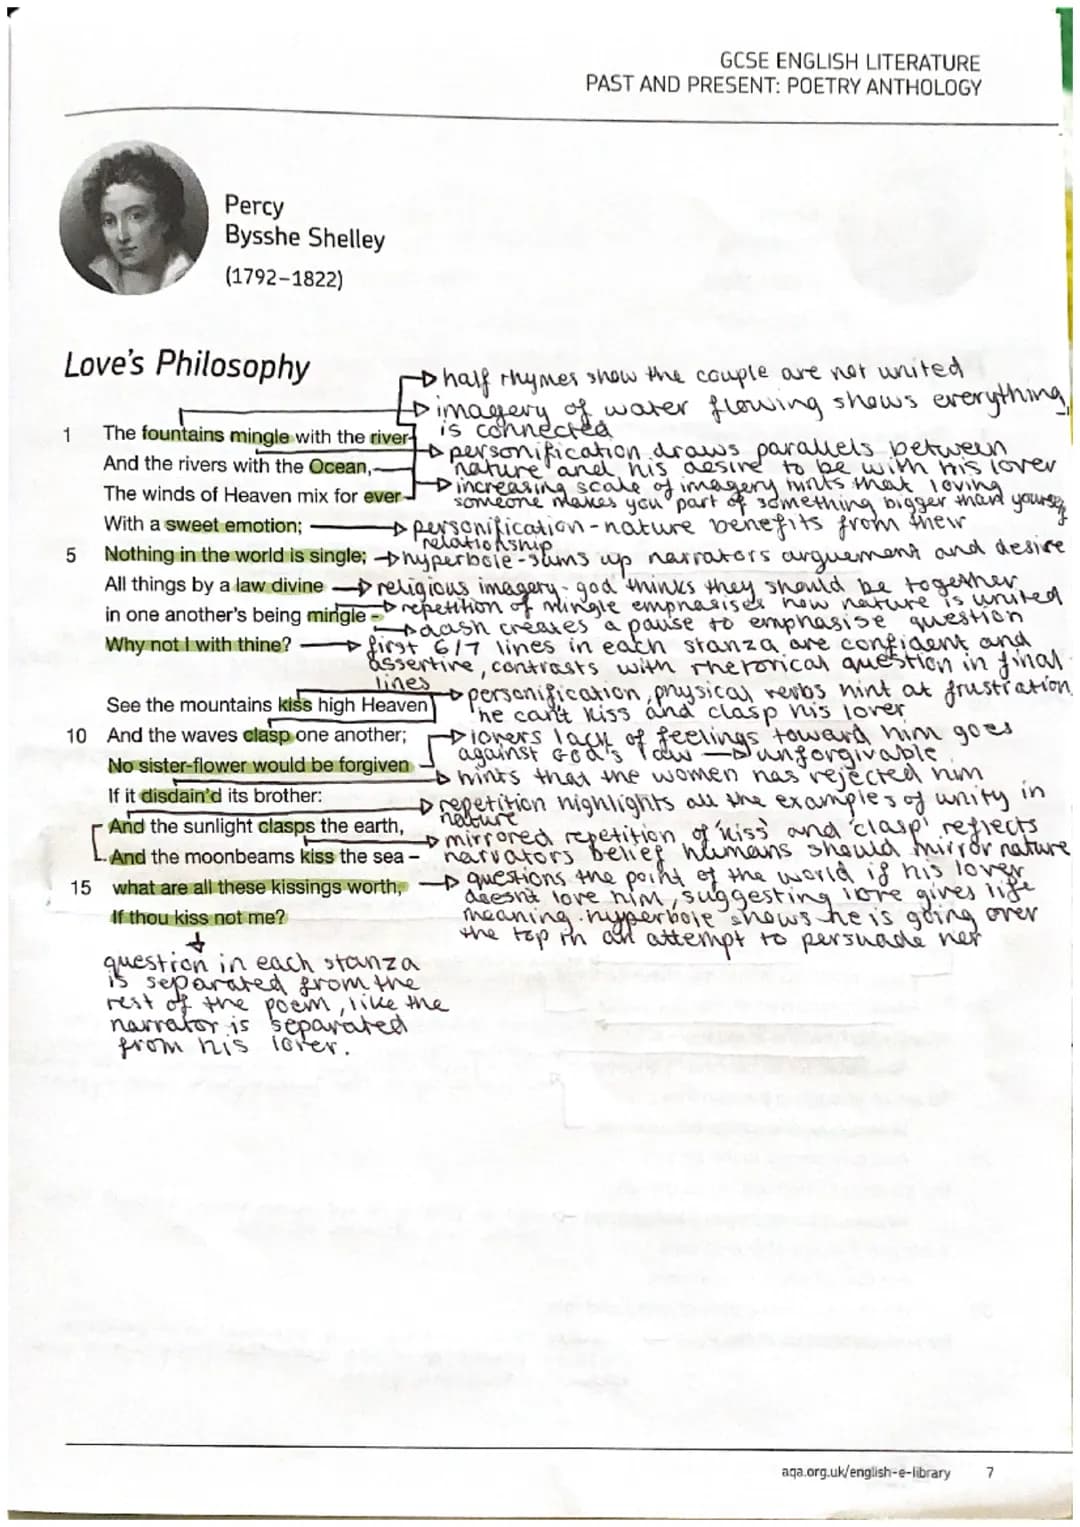 GCSE ENGLISH LITERATURE
PAST AND PRESENT: POETRY ANTHOLOGY
Percy
Bysshe Shelley
(1792–1822)
Love's Philosophy
half rhymes show the couple are not united
imagery of water flowing shows everything
is connected
1 The fountains mingle with the river
personification draws parallels between
nature and his desire to be with his lover
And the rivers with the Ocean,
increasing scale of imagery hints that loving
someone makes you part of something bigger than yourself
The winds of Heaven mix for ever
With a sweet emotion;
personification - nature benefits from their
relationship
5 Nothing in the world is single;
hyperbole - sums up narrators arguement and desire
All things by a law divine
religious imagery - god thinks they should be together
in one another's being mingle –
repetition of mingle emphasises how nature is united
dash creates a pause to emphasise question
Why not I with thine?
first 6/7 lines in each stanza are confident and
assertive, contrasts with rhetorical question in final
lines
See the mountains kiss high Heaven
personification, physical verbs hint at frustration
he can't kiss and clasp his lover
10 And the waves clasp one another;
lovers lack of feelings toward him goes
against God's law → unforgivable
No sister-flower would be forgiven
hints that the women has rejected him
If it disdain'd its brother:
repetition highlights all the examples of unity in
nature
And the sunlight clasps the earth,
mirrored repetition of 'kiss' and 'clasp' reflects
narrators belief humans should mirror nature
And the moonbeams kiss the sea –
15 what are all these kissings worth,
questions the point of the world if his lover
doesnt love him, suggesting love gives life
meaning. hyperbole shows he is going over
the top in an attempt to persuade her
If thou kiss not me?
question in each stanza
is separated from the
rest of the poem, like the
narrator is separated
from his lover.
aqa.org.uk/english-e-library 7